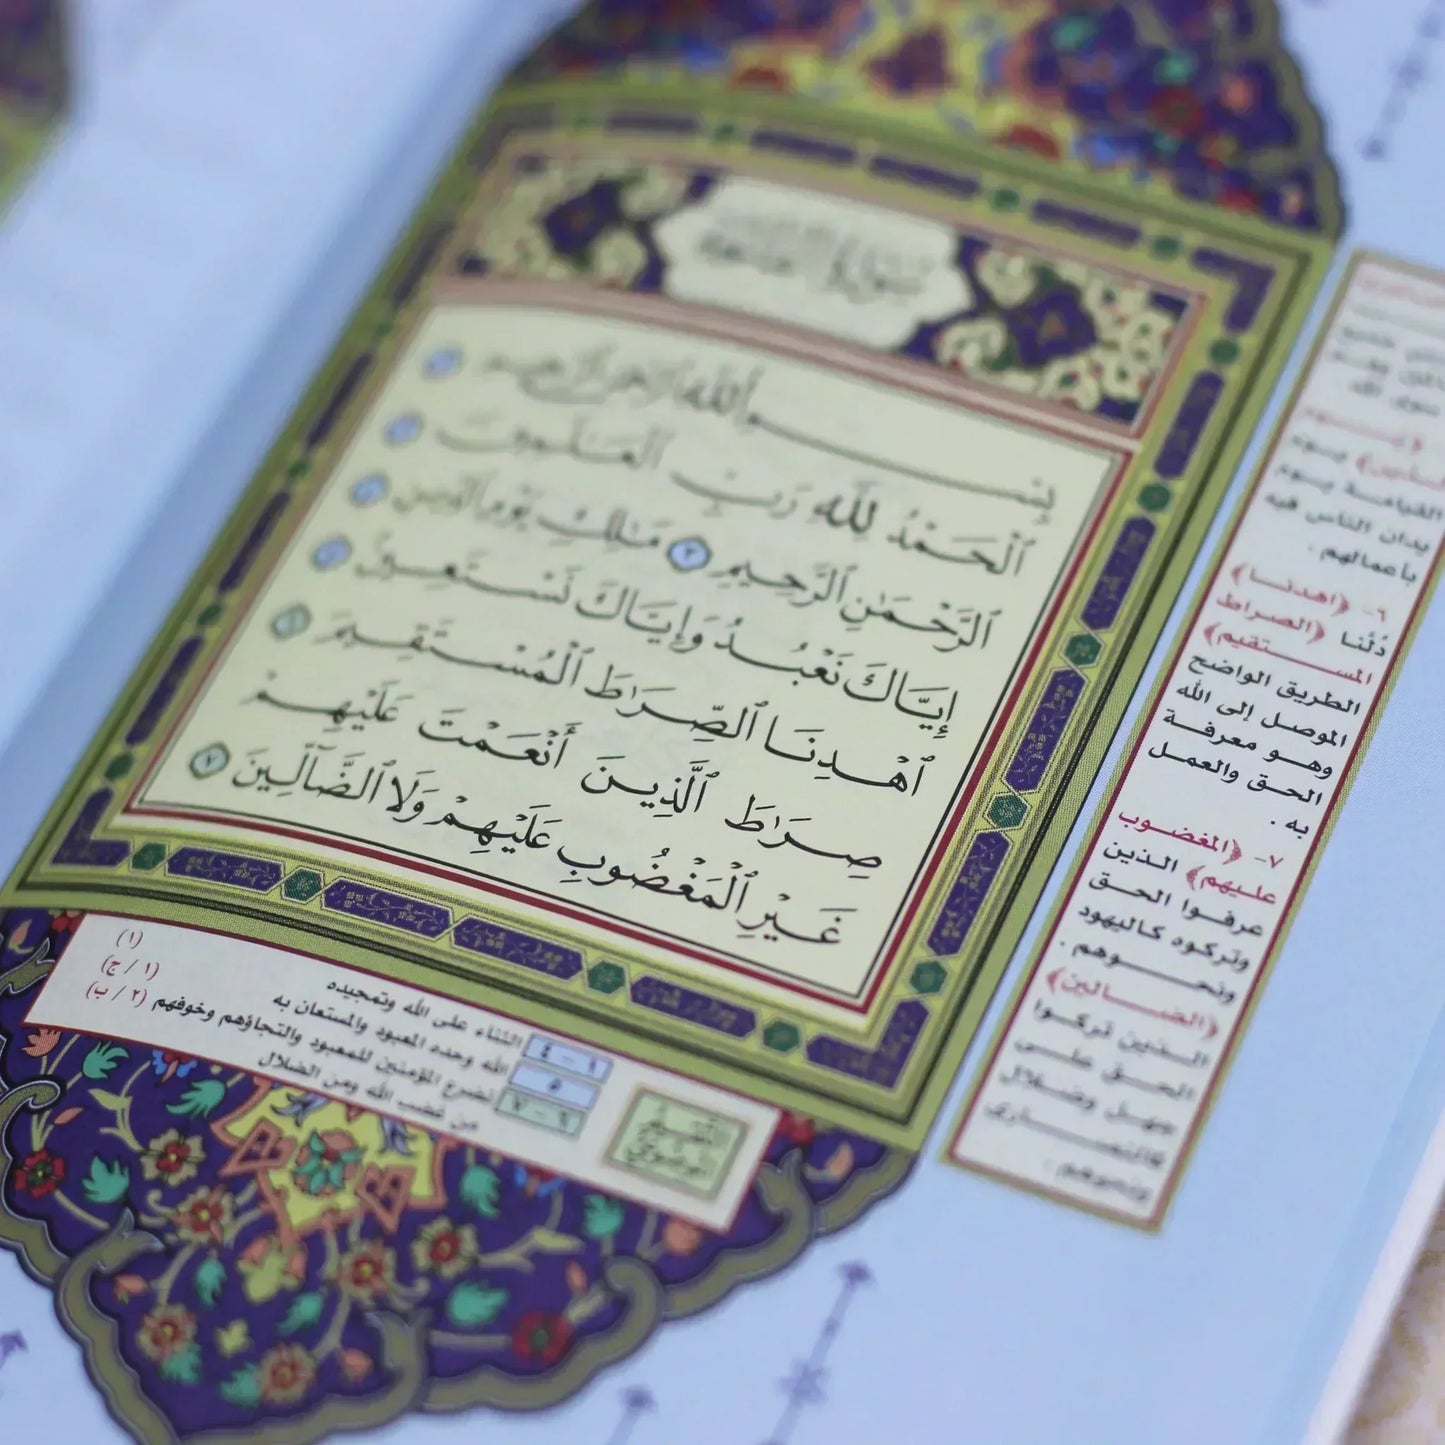 سورة الفاتحة
بِسْمِ ٱللَّهِ ٱلرَّحْمَٰنِ ٱلرَّحِيمِ ١
ٱلْحَمْدُ لِلَّهِ رَبِّ ٱلْعَٰلَمِينَ ٢
ٱلرَّحْمَٰنِ ٱلرَّحِيمِ ٣ مَٰلِكِ يَوْمِ ٱلدِّينِ ٤
إِيَّاكَ نَعْبُدُ وَإِيَّاكَ نَسْتَعِينُ ٥
ٱهْدِنَا ٱلصِّرَٰطَ ٱلْمُسْتَقِيمَ ٦
صِرَٰطَ ٱلَّذِينَ أَنْعَمْتَ عَلَيْهِمْ
غَيْرِ ٱلْمَغْضُوبِ عَلَيْهِمْ وَلَا ٱلضَّآلِّينَ ٧
التفسير
الموضوعي
١ - ٤ الثناء على الله وتمجيده (١)
٥ الله وحده المعبود والمستعان به (١ / ج)
٦ - ٧ تضرع المؤمنين للمعبود والتجاؤهم وخوفهم (٢ / ب)
من غضب الله ومن الضلال
سوى الله
﴿يوم
الدين﴾ يوم
القيامة يوم
يدان الناس فيه
بأعمالهم .
٦- ﴿اهدنا﴾
دُلَّنا ﴿الصراط
المستقيم﴾
الطريق الواضح
الموصل إلى الله
وهو معرفة
الحق والعمل
به .
٧- ﴿المغضوب
عليهم﴾ الذين
عرفوا الحق
وتركوه كاليهود
ونحوهم .
﴿الضالين﴾
الذين تركوا
الحق على
جهل وضلال
كالنصارى
ونحوهم .